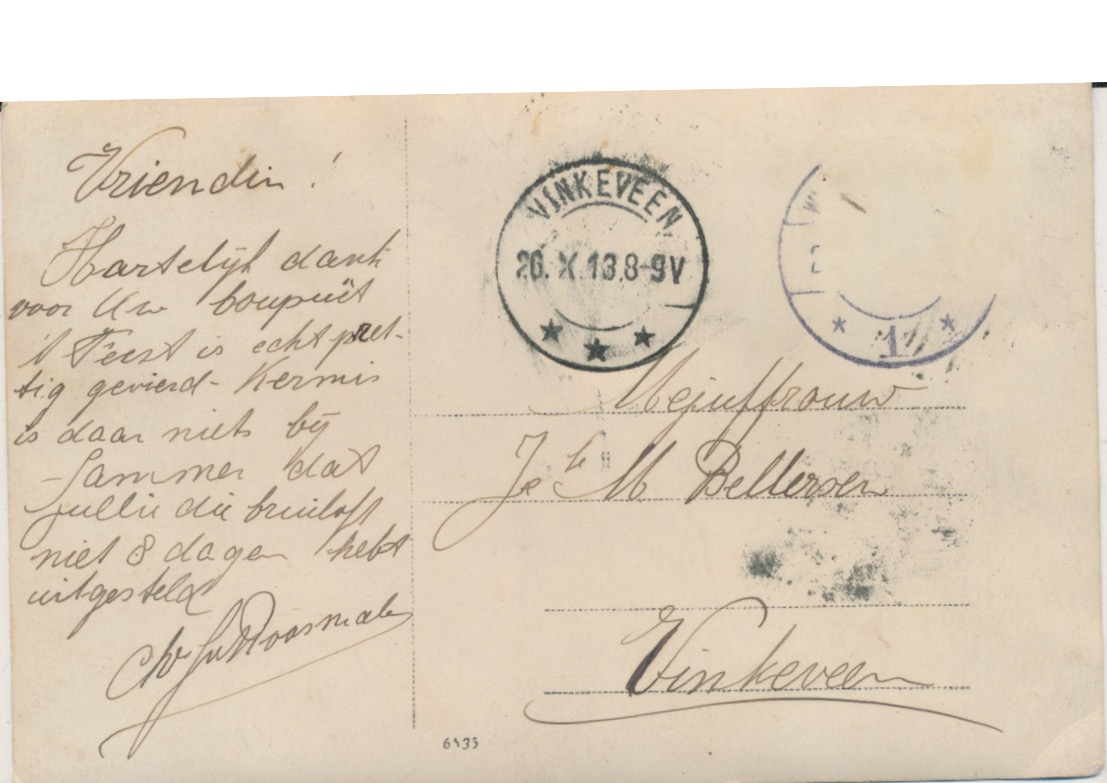 Vriendin!
Hartelijk dank
voor Uw boupuët
't Feest is echt pret-
tig gevierd - Kermis
is daar niets bij
- Jammer dat
jullie die bruiloft
niet 8 dagen hebt
uitgesteld
VINKEVEEN
26.X.13.8-9V
1
Mejuffrouw
M Bellersen
Vinkeveen
6435